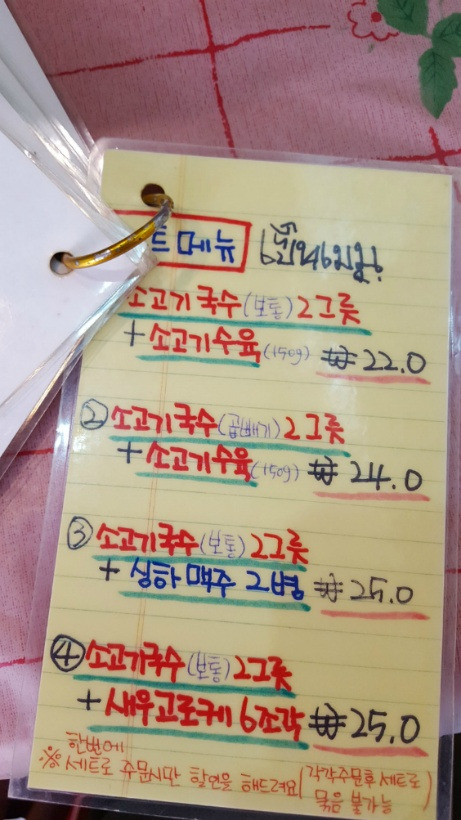 트 메뉴 เซ็ทเมนู
소고기국수(보통) 2그릇
+ 소고기수육(150g) ₩22.0
② 소고기국수(곱빼기) 2그릇
+ 소고기수육(150g) ₩24.0
③ 소고기국수(보통) 2그릇
+ 싱하맥주 2병 ₩25.0
④ 소고기국수(보통) 2그릇
+ 새우고로케 6조각 ₩25.0
※ 한번에 세트로 주문시만 할인을 해드려요 (각각주문후 세트로
묶음 불가능)